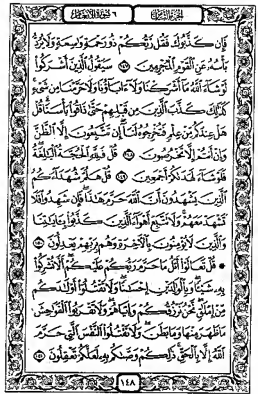 الجزء الثامن ٦ سورة الأنعام
فَإِن كَذَّبُوكَ فَقُل رَّبُّكُمْ ذُو رَحْمَةٍ وَٰسِعَةٍ وَلَا يُرَدُّ
بَأْسُهُۥ عَنِ ٱلْقَوْمِ ٱلْمُجْرِمِينَ ١٤٧ سَيَقُولُ ٱلَّذِينَ أَشْرَكُوا۟
لَوْ شَآءَ ٱللَّهُ مَآ أَشْرَكْنَا وَلَآ ءَابَآؤُنَا وَلَا حَرَّمْنَا مِن شَىْءٍ
كَذَٰلِكَ كَذَّبَ ٱلَّذِينَ مِن قَبْلِهِمْ حَتَّىٰ ذَاقُوا۟ بَأْسَنَا قُلْ
هَلْ عِندَكُم مِّنْ عِلْمٍ فَتُخْرِجُوهُ لَنَآ إِن تَتَّبِعُونَ إِلَّا ٱلظَّنَّ
وَإِنْ أَنتُمْ إِلَّا تَخْرُصُونَ ١٤٨ قُلْ فَلِلَّهِ ٱلْحُجَّةُ ٱلْبَٰلِغَةُ
فَلَوْ شَآءَ لَهَدَىٰكُمْ أَجْمَعِينَ ١٤٩ قُلْ هَلُمَّ شُهَدَآءَكُمُ
ٱلَّذِينَ يَشْهَدُونَ أَنَّ ٱللَّهَ حَرَّمَ هَٰذَا فَإِن شَهِدُوا۟ فَلَا
تَشْهَدْ مَعَهُمْ وَلَا تَتَّبِعْ أَهْوَآءَ ٱلَّذِينَ كَذَّبُوا۟ بِـَٔايَٰتِنَا
وَٱلَّذِينَ لَا يُؤْمِنُونَ بِٱلْـَٔاخِرَةِ وَهُم بِرَبِّهِمْ يَعْدِلُونَ ١٥٠
قُلْ تَعَالَوْا۟ أَتْلُ مَا حَرَّمَ رَبُّكُمْ عَلَيْكُمْ أَلَّا تُشْرِكُوا۟
بِهِۦ شَيْـًٔا وَبِٱلْوَٰلِدَيْنِ إِحْسَٰنًا وَلَا تَقْتُلُوٓا۟ أَوْلَٰدَكُم
مِّنْ إِمْلَٰقٍ نَّحْنُ نَرْزُقُكُمْ وَإِيَّاهُمْ وَلَا تَقْرَبُوا۟ ٱلْفَوَٰحِشَ
مَا ظَهَرَ مِنْهَا وَمَا بَطَنَ وَلَا تَقْتُلُوا۟ ٱلنَّفْسَ ٱلَّتِى حَرَّمَ
ٱللَّهُ إِلَّا بِٱلْحَقِّ ذَٰلِكُمْ وَصَّىٰكُم بِهِۦ لَعَلَّكُمْ تَعْقِلُونَ ١٥١
١٤٨